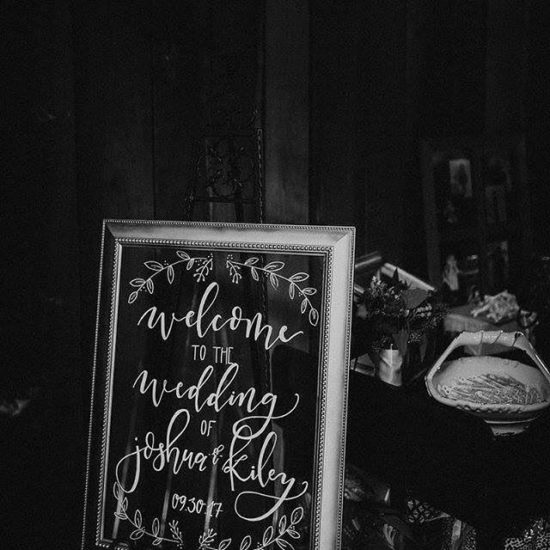 welcome
TO THE
wedding
OF
joshua & Kiley
09.30.17